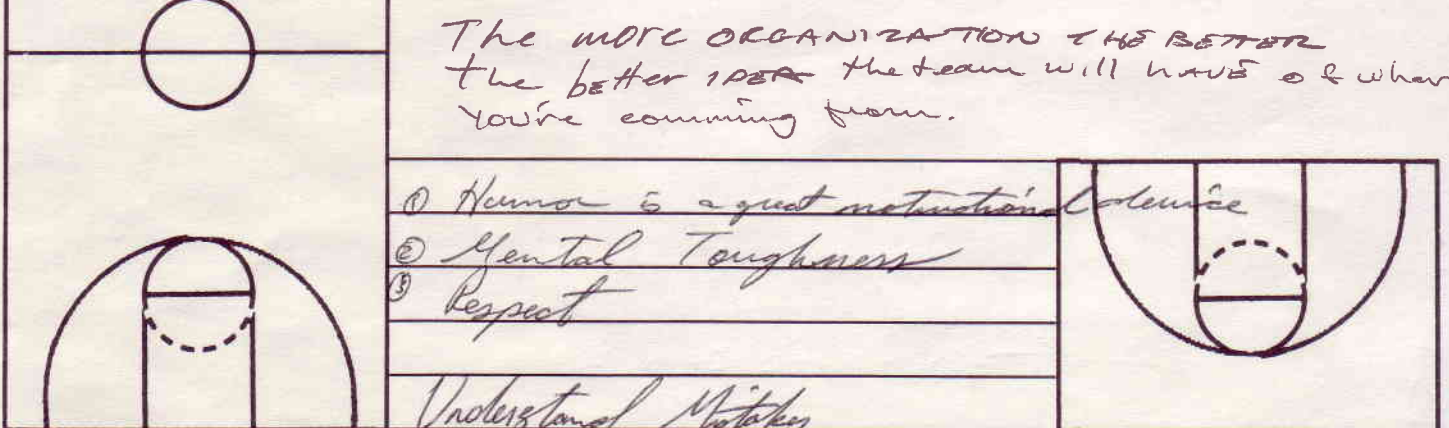 The more ORGANIZATION THE BETTER
the better IDEA the team will HAVE of wher
You're comming from.
① Humor is a great motivational device
② Mental Toughness
③ Respect
Understand Mistakes